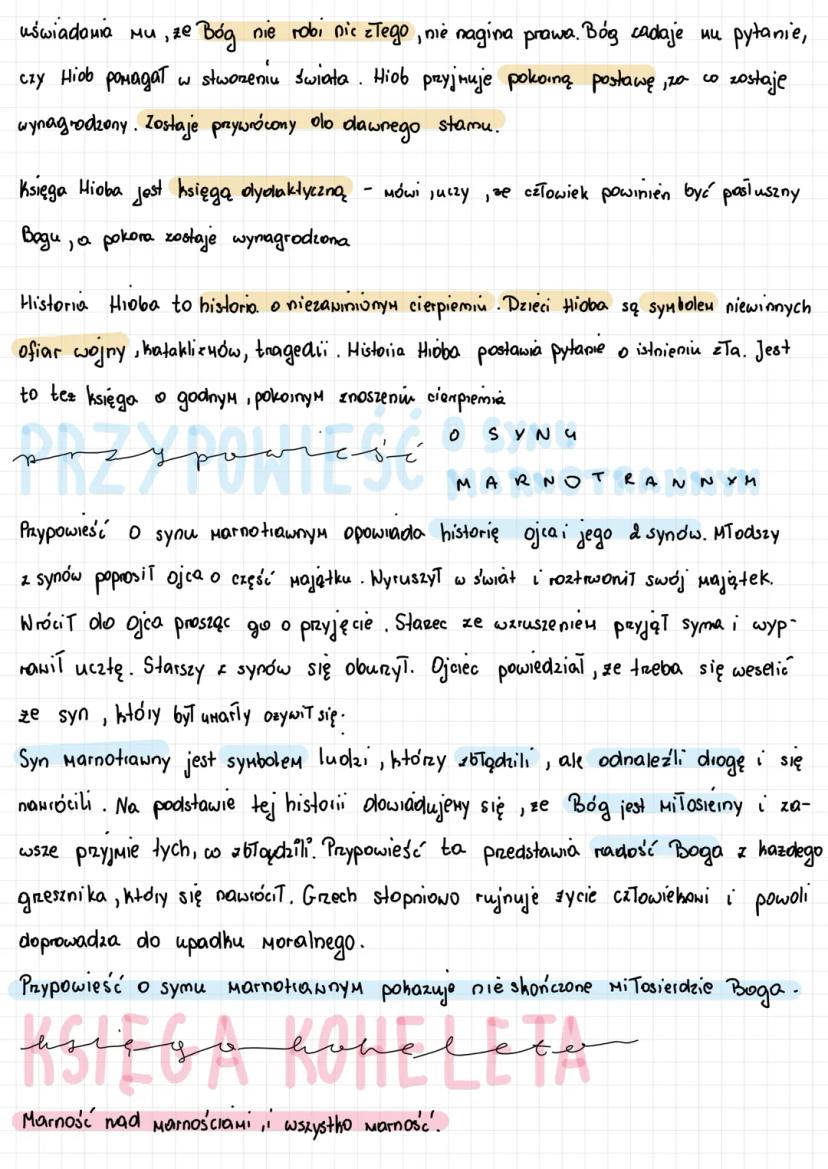 uświadamia mu, że Bóg nie robi nic złego, nie nagina prawa. Bóg zadaje mu pytanie,
czy Hiob pomagał w stworzeniu świata. Hiob przyjmuje pokorną postawę, za co zostaje
wynagrodzony. Zostaje przywrócony do dawnego stanu.
Księga Hioba jest księgą dydaktyczną - mówi, uczy, że człowiek powinien być posłuszny
Bogu, a pokora zostaje wynagrodzona
Historia Hioba to historia o niezawinionym cierpieniu. Dzieci Hioba są symbolem niewinnych
ofiar wojny, kataklizmów, tragedii. Historia Hioba postawia pytanie o istnieniu zła. Jest
to też księga o godnym, pokornym znoszeniu cierpienia
PRZYPOWIEŚĆ O SYNU
MARNOTRAWNYM
Przypowieść o synu marnotrawnym opowiada historię ojca i jego 2 synów. Młodszy
z synów poprosił ojca o część majątku. Wyruszył w świat i roztrwonił swój majątek.
Wrócił do ojca prosząc go o przyjęcie. Starzec ze wzruszeniem przyjął syna i wyp-
rawił ucztę. Starszy z synów się oburzył. Ojciec powiedział, że trzeba się weselić
że syn, który był umarły ożywił się.
Syn marnotrawny jest symbolem ludzi, którzy zbłądzili, ale odnaleźli drogę i się
nawrócili. Na podstawie tej historii dowiadujemy się, że Bóg jest miłosierny i za-
wsze przyjmie tych, co zbłądzili. Przypowieść ta przedstawia radość Boga z każdego
grzesznika, który się nawrócił. Grzech stopniowo rujnuje życie człowiekowi i powoli
doprowadza do upadku moralnego.
Przypowieść o synu marnotrawnym pokazuje nieskończone miłosierdzie Boga.
KSIĘGA KOHELETA
Marność nad marnościami, i wszystko marność.